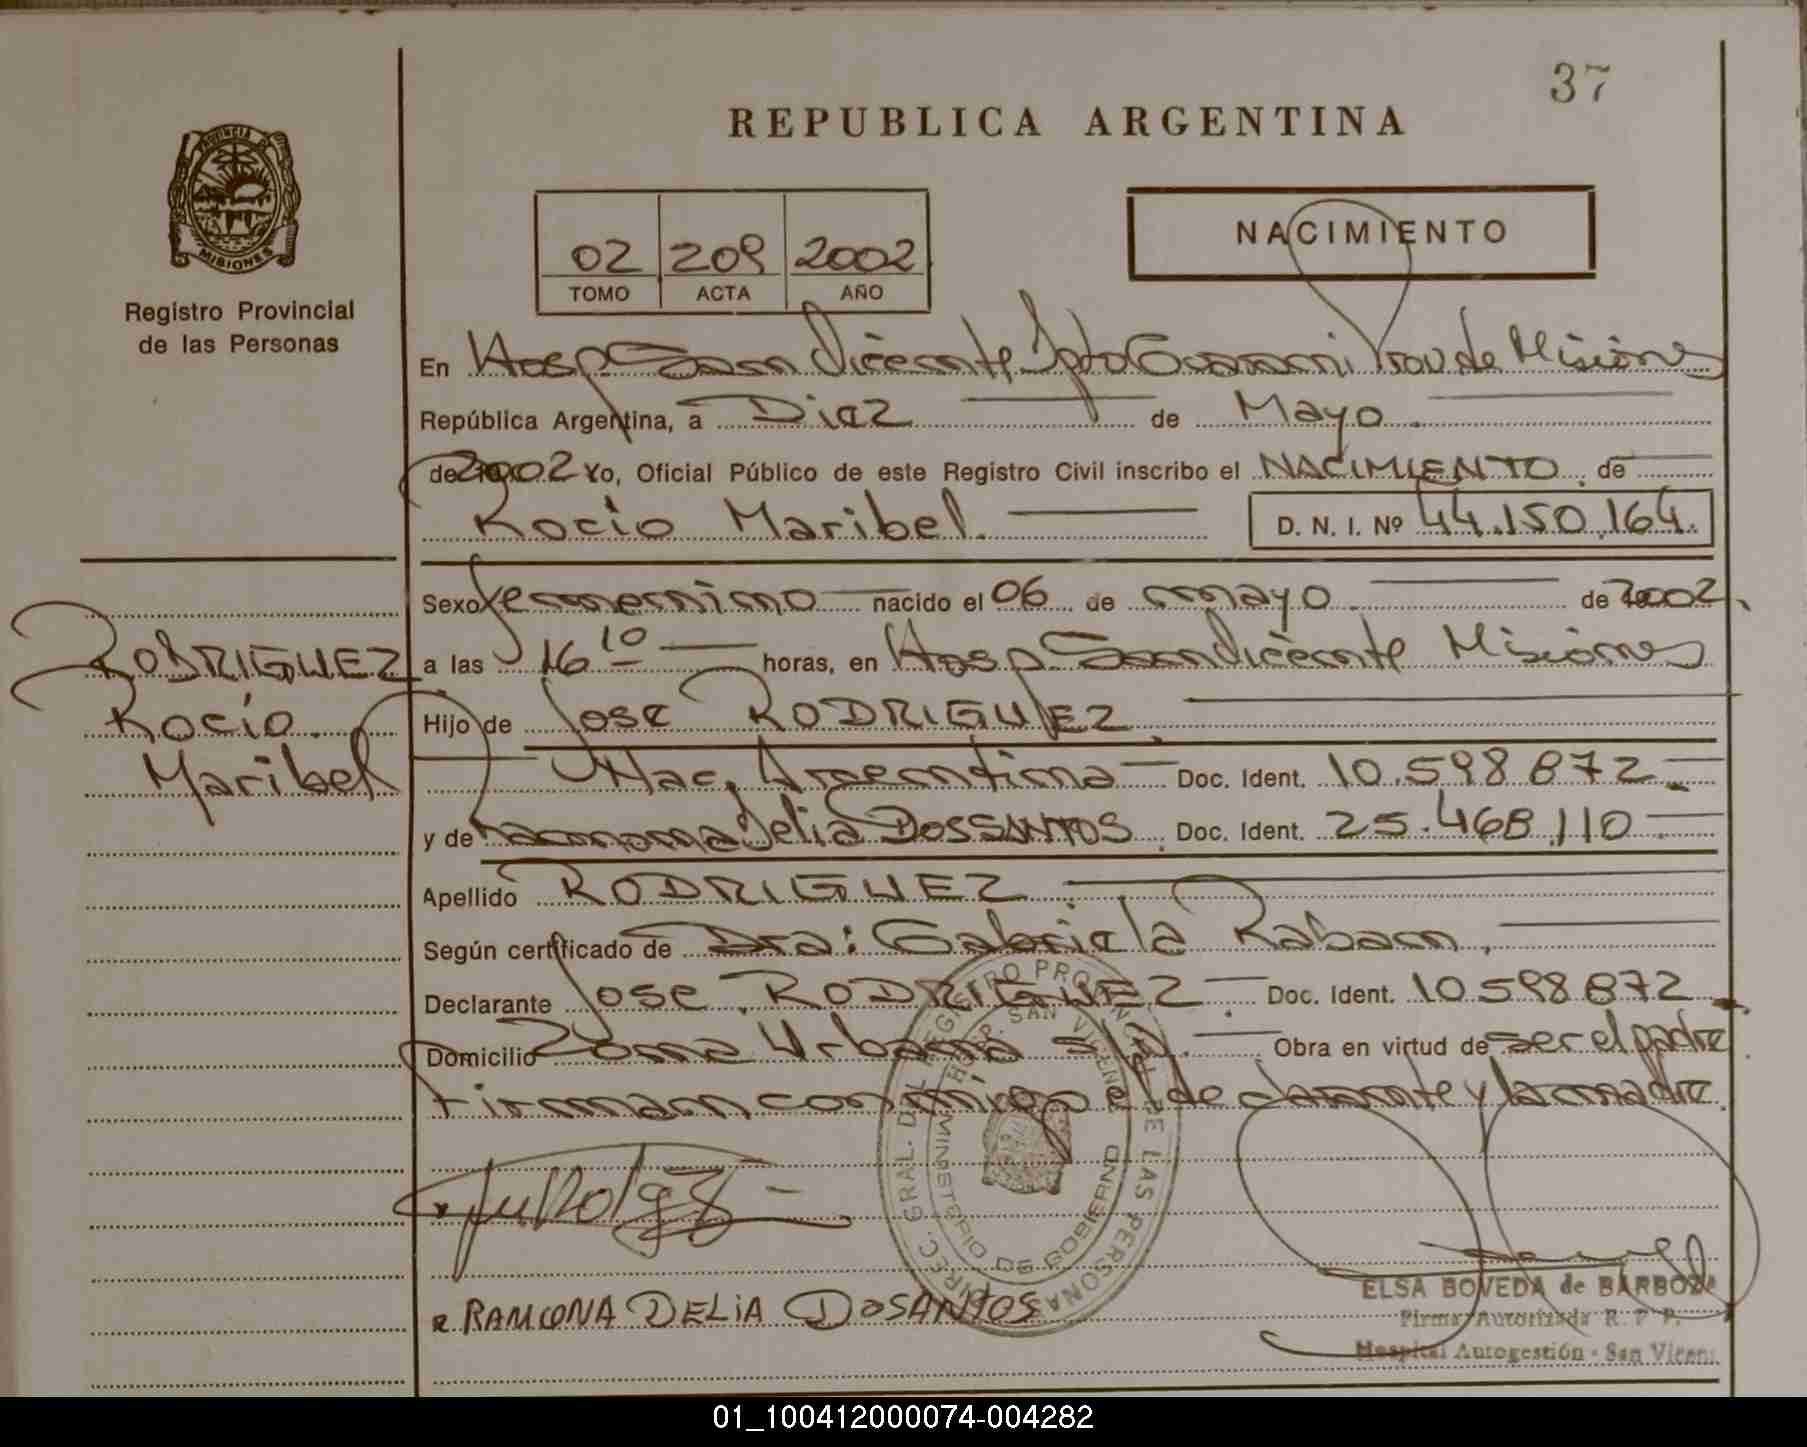 37
REPUBLICA ARGENTINA
PROVINCIA
MISIONES
Registro Provincial
de las Personas
02 209 2002
TOMO ACTA AÑO
NACIMIENTO
En Hosp San Vicente Dpto Guarani Prov de Misiones
República Argentina, a Diez de Mayo
de 2002 Yo, Oficial Público de este Registro Civil inscribo el NACIMIENTO de
Rocio Maribel. D. N. I. Nº 44.150.164.
Sexo femenino nacido el 06 de mayo de 2002.
a las 16 10 horas, en Hosp San Vicente Misiones
Hijo de Jose RODRIGUEZ
Nac. Argentina Doc. Ident. 10.598.872
y de Ramona Delia DOSSANTOS Doc. Ident. 25.468.110
Apellido RODRIGUEZ
Según certificado de Dra: Gabriela Raban
Declarante Jose RODRIGUEZ Doc. Ident. 10.598.872
Domicilio Zona Urbana s/n. Obra en virtud de ser el padre
Firman conmigo el declarante y la madre.
RODRIGUEZ
Rocio
Maribel
DIREC. GRAL. DEL REGISTRO PROVINCIAL DE LAS PERSONAS
HOSP. SAN VICENTE
MINISTERIO DE GOBIERNO
RAMONA DELIA DOSANTOS
ELSA BOVEDA de BARBOZA
Firma Autorizada R. P. P.
Hospital Autogestión - San Vicen
01_100412000074-004282